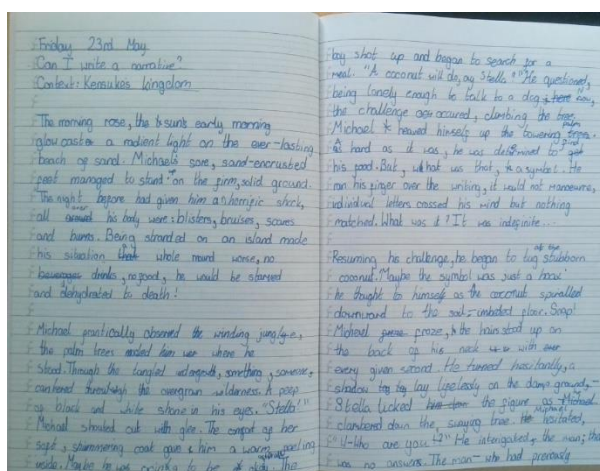 Friday 23rd May
Can I write a narrative?
Context: Kensuke's kingdom
The morning rose, the sun's early morning
glow casted a radient light on the ever-lasting
beach of sand. Michael's sore, sand-encrusted
feet managed to stand on the firm, solid ground.
The night before had given him a horrific shock,
all over his body were: blisters, bruises, scares
and burns. Being stranded on an island made
his situation whole round worse, no
drinks, no food, he would be starved
and dehydrated to death!
Michael frantically observed the winding jungle,
the palm trees where he
stood. Through the tangled, something, someone,
cantered through the overgrown wilderness. A peep
of black and white shone in his eyes. "Stella!"
Michael shouted out with glee. The comfort of her
soft, shimmering coat gave him a warm feeling
inside. Maybe he was going to be okay. The
boy shot up and began to search for a
meal. "A coconut will do, ay Stella?" He questioned,
being lonely enough to talk to a dog
the challenge occured, climbing the tree.
Michael heaved himself up the towering palm
as hard as it was, he was determined to find
his food. But, what was that, a symbol. He
ran his finger over the writing, it would not manoeuvre,
individual letters crossed his mind but nothing
matched. What was it? It was indefinite...
Resuming his challenge, he began to tug at the stubborn
coconut. Maybe the symbol was just a hoax'
he thought to himself as the coconut spiralled
downward to the soil-imbedded floor. Snap!
Michael froze, the hairs stood up on
the back of his neck with
every given second. He turned hesitantly, a
shadow lay lifelessly on the damp ground,-
Stella licked the figure as Michael
clambered down the, swaying tree. Michael hesitated,
"U-Who are you!?" He interrogated, the man; that
was no answers. The man- who had previously